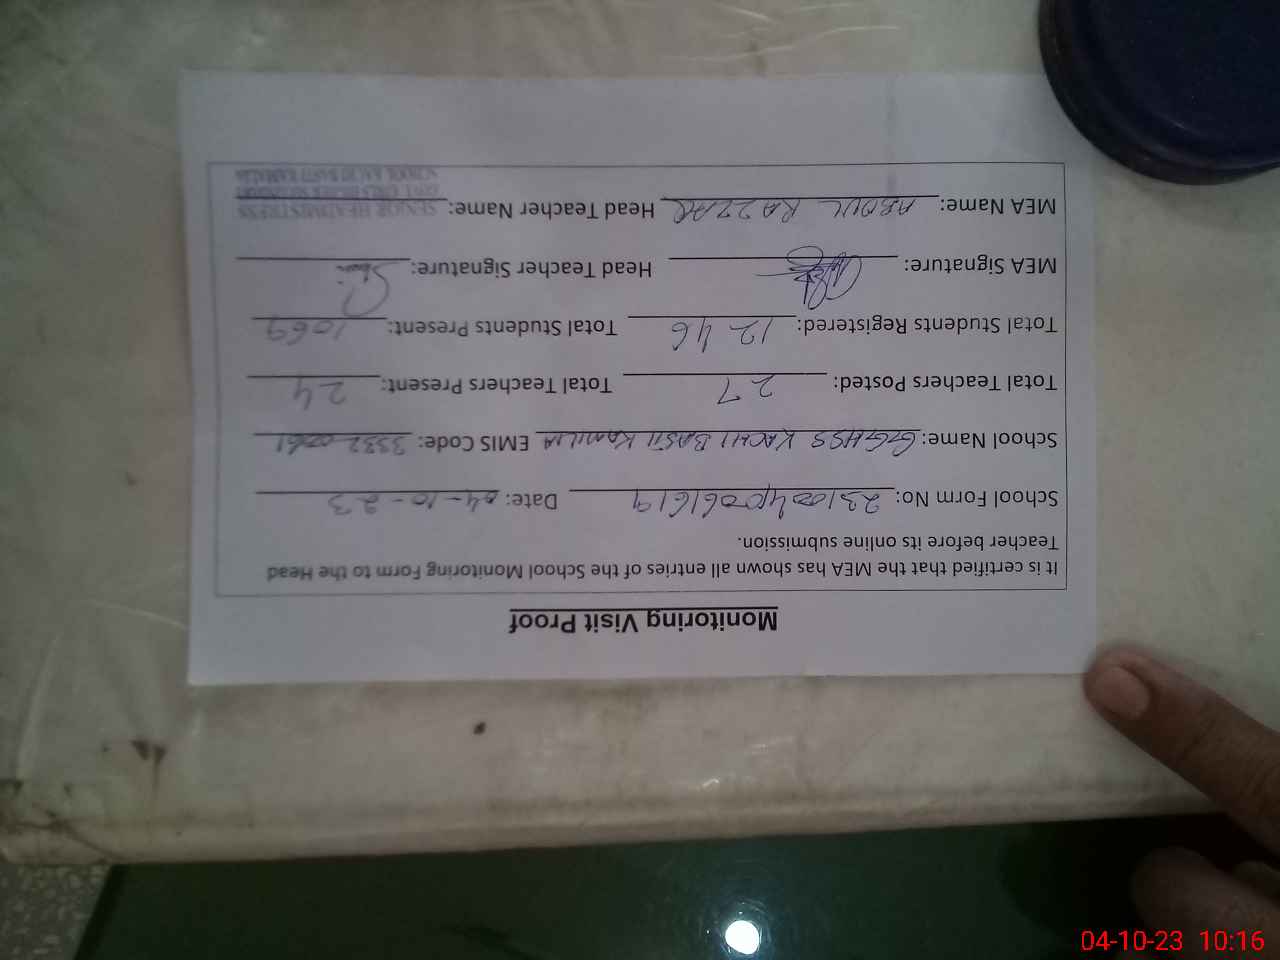 Monitoring Visit Proof
It is certified that the MEA has shown all entries of the School Monitoring Form to the Head
Teacher before its online submission.
School Form No: 231004100061619 Date: 04-10-23
School Name: GGHSS KACHI BASTI KAMILIA EMIS Code: 33320061
Total Teachers Posted: 27 Total Teachers Present: 24
Total Students Registered: 1246 Total Students Present: 1069
MEA Signature: Head Teacher Signature:
MEA Name: ABDUL RAZZAQ Head Teacher Name:
SENIOR HEADMISTRESS
GOVT. GIRLS HIGHER SECONDARY
SCHOOL KACHI BASTI KAMALIA
04-10-23 10:16